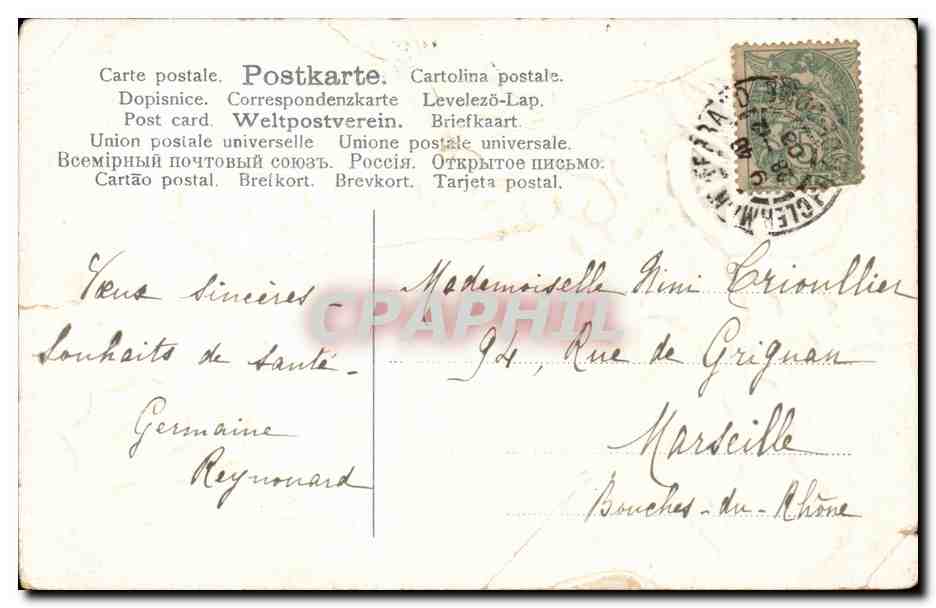 Carte postale. Postkarte. Cartolina postale.
Dopisnice. Correspondenzkarte Levelező-Lap.
Post card. Weltpostverein. Briefkaart.
Union postale universelle Unione postale universale.
Всемірный почтовый союзъ. Россія. Открытое письмо.
Cartão postal. Brefkort. Brevkort. Tarjeta postal.
Vœux sincères –
Souhaits de santé –
Germaine
Reynouard
Mademoiselle Nini Trioullier
94, Rue de Grignan
Marseille
Bouches-du-Rhône
CPAPHIL